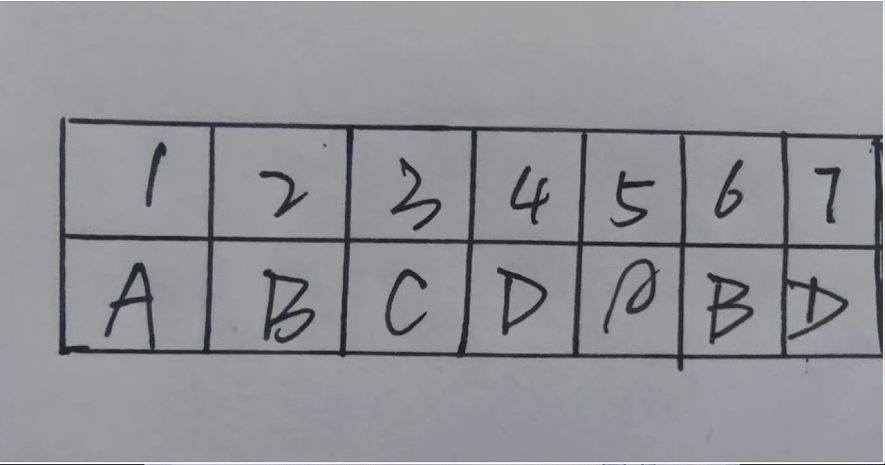 1 2 3 4 5 6 7
A B C D A B D